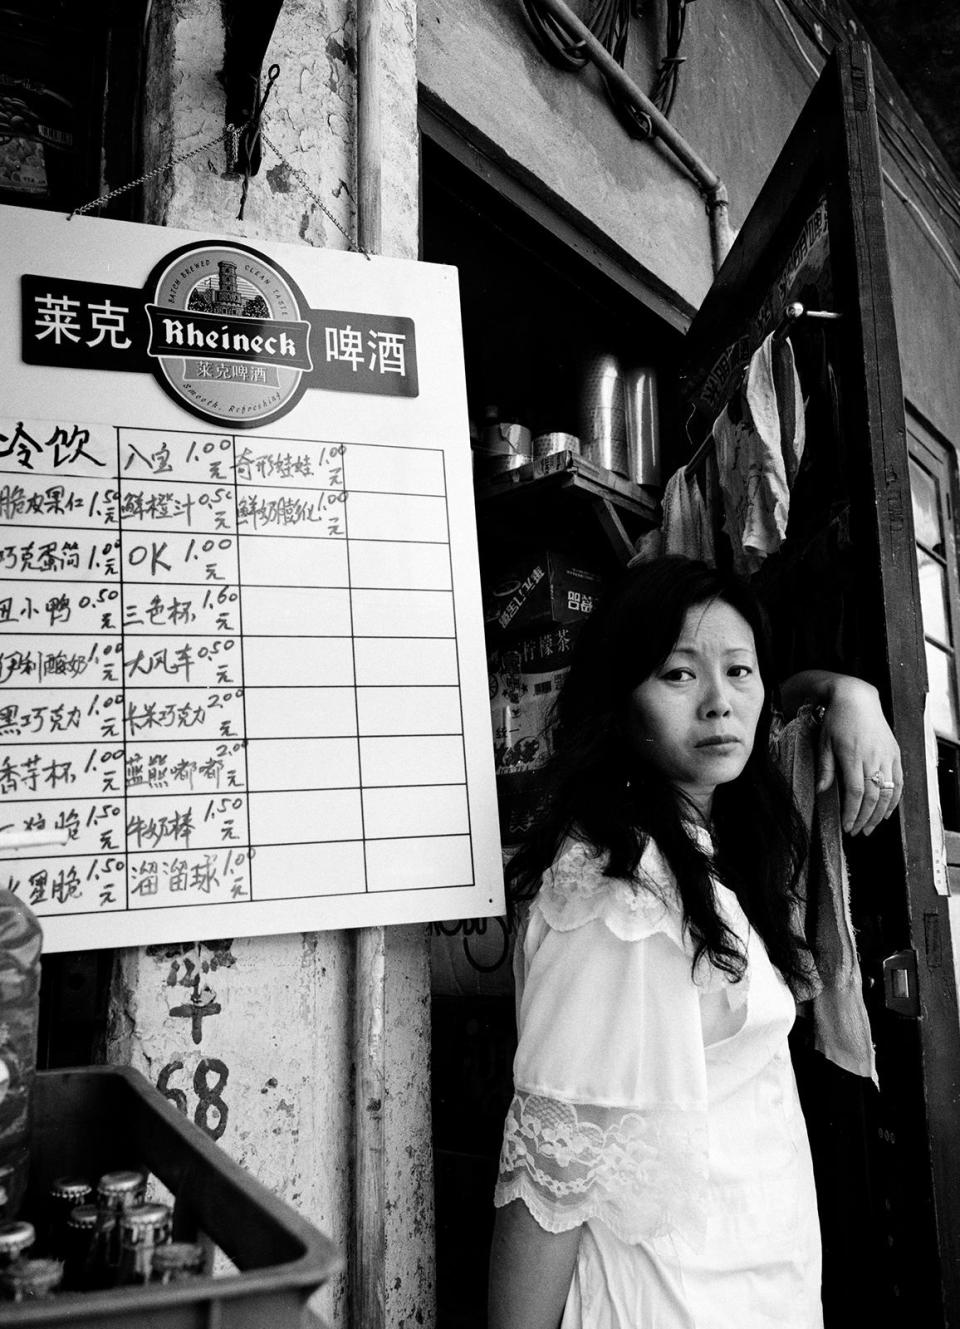 BATCH BREWED CLEAN TASTE
莱克 Rheineck 啤酒
莱克啤酒
Smooth, Refreshing
冷饮 八宝 1.00元 奇形蛙蛙 1.00元
脆皮果仁 1.50元 鲜橙汁 0.50元 鲜奶膨化 1.00元
巧克蛋筒 1.00元 OK 1.00元
丑小鸭 0.50元 三色杯 1.60元
伊利酸奶 1.00元 大风车 0.50元
黑巧克力 1.00元 卡米巧克力 2.00元
香芋杯 1.00元 蓝熊嘟嘟 2.00元
1.50元 牛奶棒 1.50元
火星脆 1.50元 溜溜球 1.00元
柠檬茶
统一
68